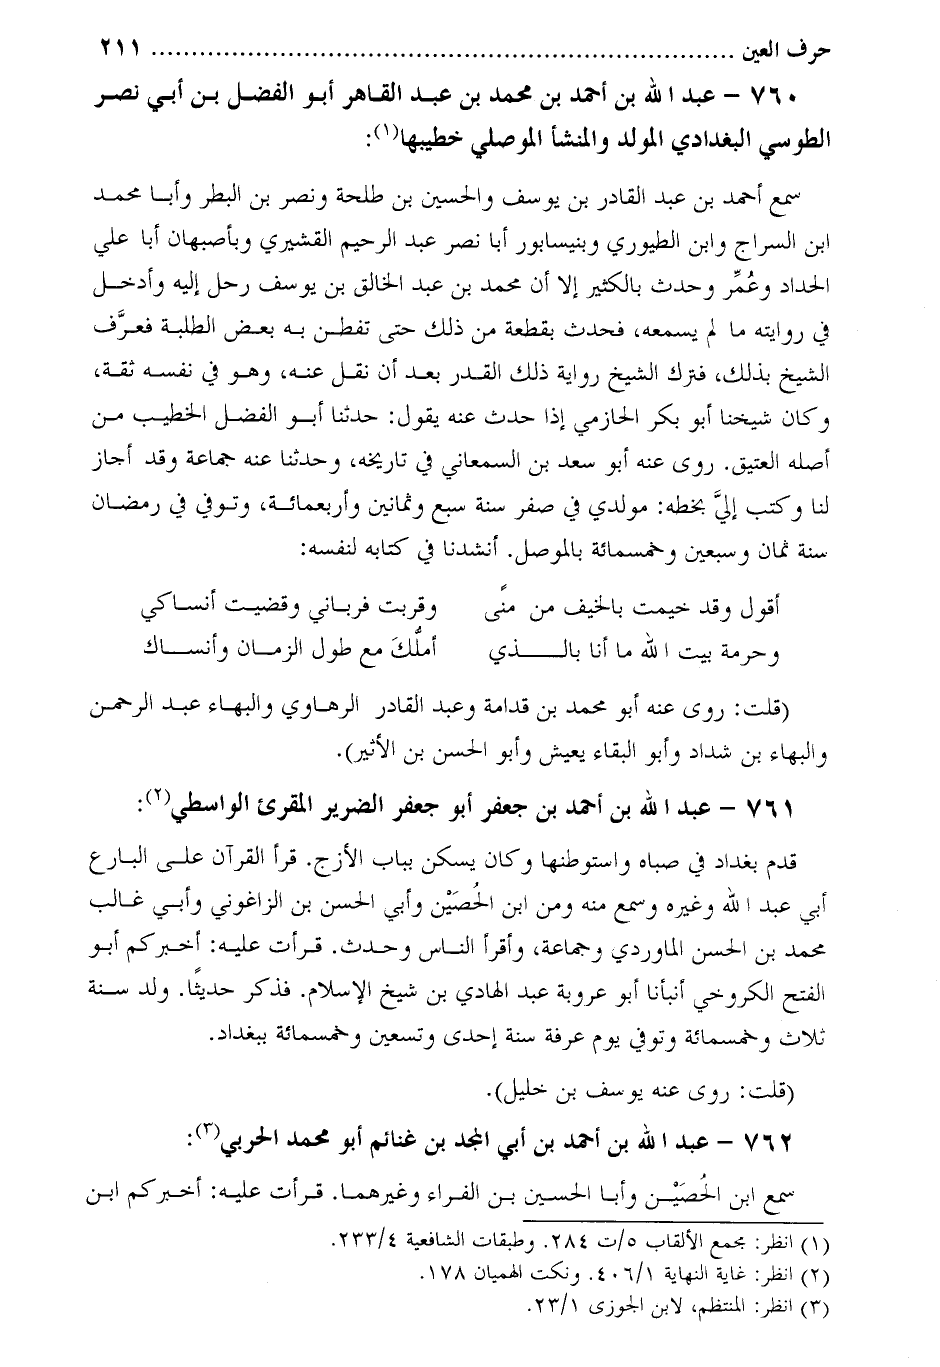 حرف العين ............................................................................ ٢١١
٧٦٠ - عبد الله بن أحمد بن محمد بن عبد القاهر أبو الفضل بن أبي نصر
الطوسي البغدادي المولد والمنشأ الموصلي خطيبها(١):
سمع أحمد بن عبد القادر بن يوسف والحسين بن طلحة ونصر بن البطر وأبا محمد
ابن السراج وابن الطيوري وبنيسابور أبا نصر عبد الرحيم القشيري وبأصبهان أبا علي
الحداد وعُمِّر وحدث بالكثير إلا أن محمد بن عبد الخالق بن يوسف رحل إليه وأدخل
في روايته ما لم يسمعه، فحدث بقطعة من ذلك حتى تفطن به بعض الطلبة فعرَّف
الشيخ بذلك، فترك الشيخ رواية ذلك القدر بعد أن نقل عنه، وهو في نفسه ثقة،
وكان شيخنا أبو بكر الحازمي إذا حدث عنه يقول: حدثنا أبو الفضل الخطيب من
أصله العتيق. روى عنه أبو سعد بن السمعاني في تاريخه، وحدثنا عنه جماعة وقد أجاز
لنا وكتب إليَّ بخطه: مولدي في صفر سنة سبع وثمانين وأربعمائة، وتوفي في رمضان
سنة ثمان وسبعين وخمسمائة بالموصل. أنشدنا في كتابه لنفسه:
أقول وقد خيمت بالخيف من منًى وقربت قرباني وقضيت أنساكي
وحرمة بيت الله ما أنا بالذي أملُّكَ مع طول الزمان وأنساك
(قلت: روى عنه أبو محمد بن قدامة وعبد القادر الرهاوي والبهاء عبد الرحمن
والبهاء بن شداد وأبو البقاء يعيش وأبو الحسن بن الأثير).
٧٦١ - عبد الله بن أحمد بن جعفر أبو جعفر الضرير المقرئ الواسطي(٢):
قدم بغداد في صباه واستوطنها وكان يسكن بباب الأزج. قرأ القرآن على البارع
أبي عبد الله وغيره وسمع منه ومن ابن الحُصَيْن وأبي الحسن بن الزاغوني وأبي غالب
محمد بن الحسن الماوردي وجماعة، وأقرأ الناس وحدث. قرأت عليه: أخبركم أبو
الفتح الكروخي أنبأنا أبو عروبة عبد الهادي بن شيخ الإسلام. فذكر حديثًا. ولد سنة
ثلاث وخمسمائة وتوفي يوم عرفة سنة إحدى وتسعين وخمسمائة ببغداد.
(قلت: روى عنه يوسف بن خليل).
٧٦٢ - عبد الله بن أحمد بن أبي المجد بن غنائم أبو محمد الحربي(٣):
سمع ابن الحُصَيْن وأبا الحسين بن الفراء وغيرهما. قرأت عليه: أخبركم ابن
(١) انظر: مجمع الألقاب ٥/ت ٢٨٤. وطبقات الشافعية ٢٣٣/٤.
(٢) انظر: غاية النهاية ٤٠٦/١. ونكت الهميان ١٧٨.
(٣) انظر: المنتظم، لابن الجوزى ٢٣/١.